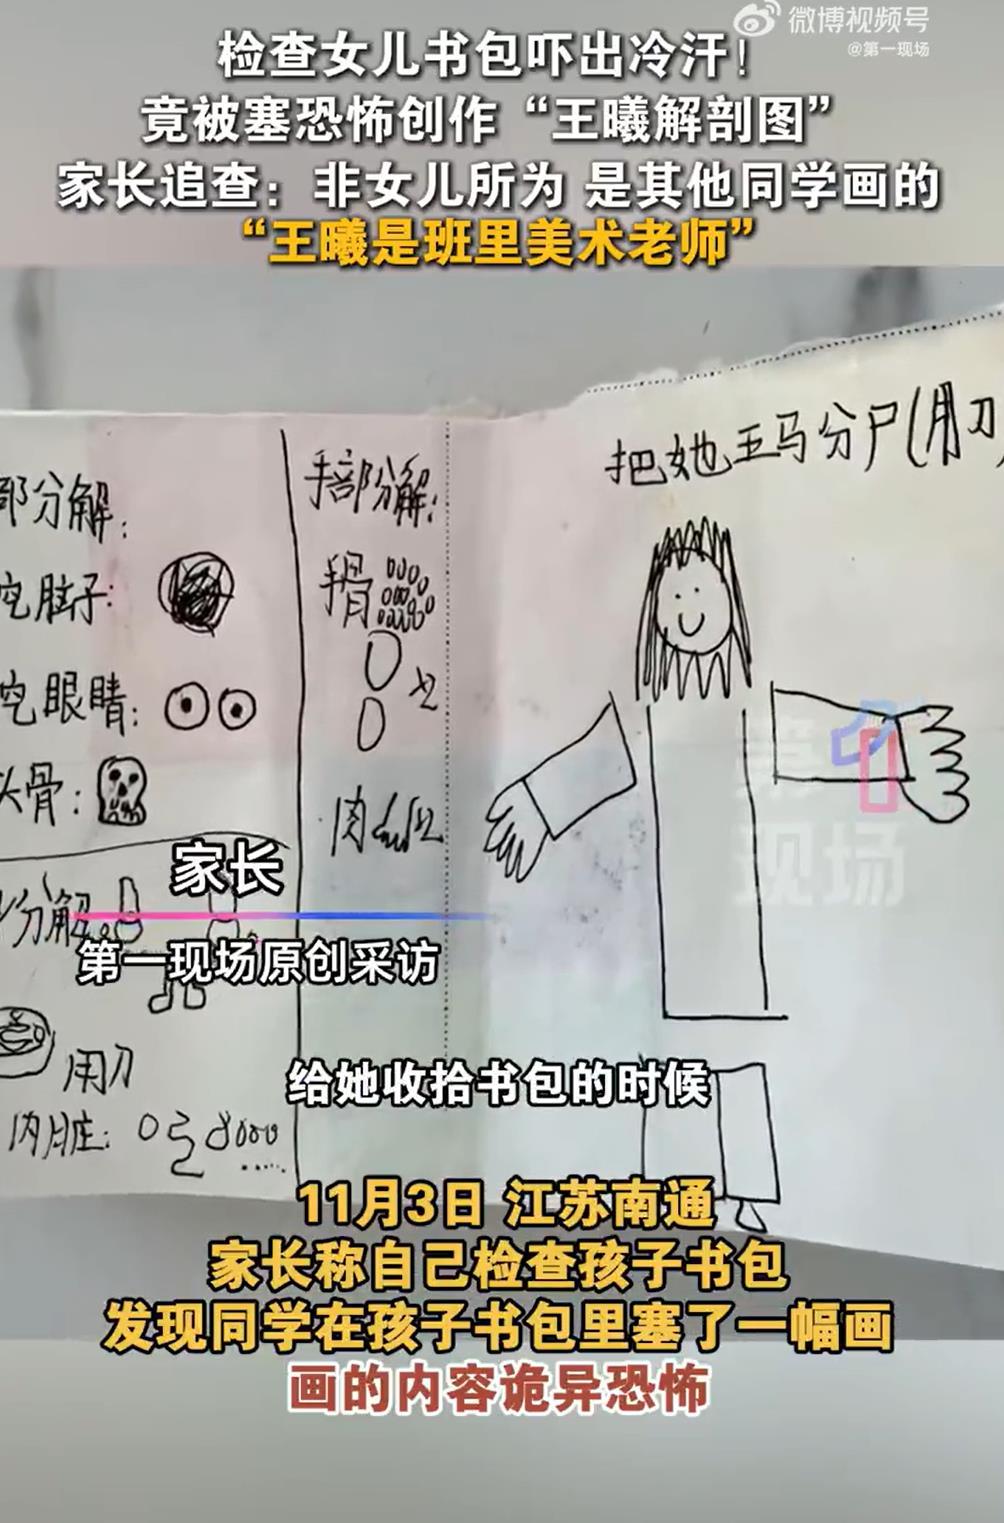 微博视频号
@第一现场
检查女儿书包吓出冷汗！
竟被塞恐怖创作“王曦解剖图”
家长追查：非女儿所为 是其他同学画的
“王曦是班里美术老师”
把她五马分尸(用刀)
部分解：
手部分解：
挖脑子：
手骨
挖眼睛：
x2
头骨：
肉
x2
第1
现场
家长
分解
第一现场原创采访
用刀
内脏：
给她收拾书包的时候
11月3日 江苏南通
家长称自己检查孩子书包
发现同学在孩子书包里塞了一幅画
画的内容诡异恐怖